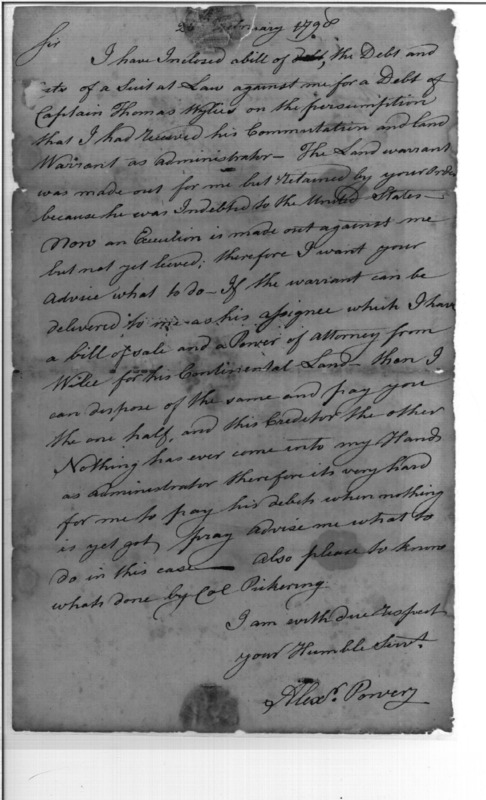 26 February 1798
Sir
I have Inclosed a bill of debt, the Debt and
cts of a Suit at Law against me for a Debt of
Captain Thomas Wylies on the persumption
that I had received his Commutation and land
Warrant as administrator— The Land warrant
was made out for me but retained by your Order
because he was Indebted to the United States—
Now an Execution is made out against me
but not yet leeved; therefore I want your
advice what to do— If the warrant can be
delivered to me as his assignee which I have
a bill of sale and a Power of attorney from
Wilee for his Continental Land— than I
can dispose of the same and pay you
the one half, and this Creditor the other
Nothing has ever come into my Hands
as administrator therefore its very hard
for me to pay his debts when nothing
is yet got, pray advise me what to
do in this case— also please to know
whats done by Col Pickering
I am with due respect
your Humble Servt.
Alexr. Power